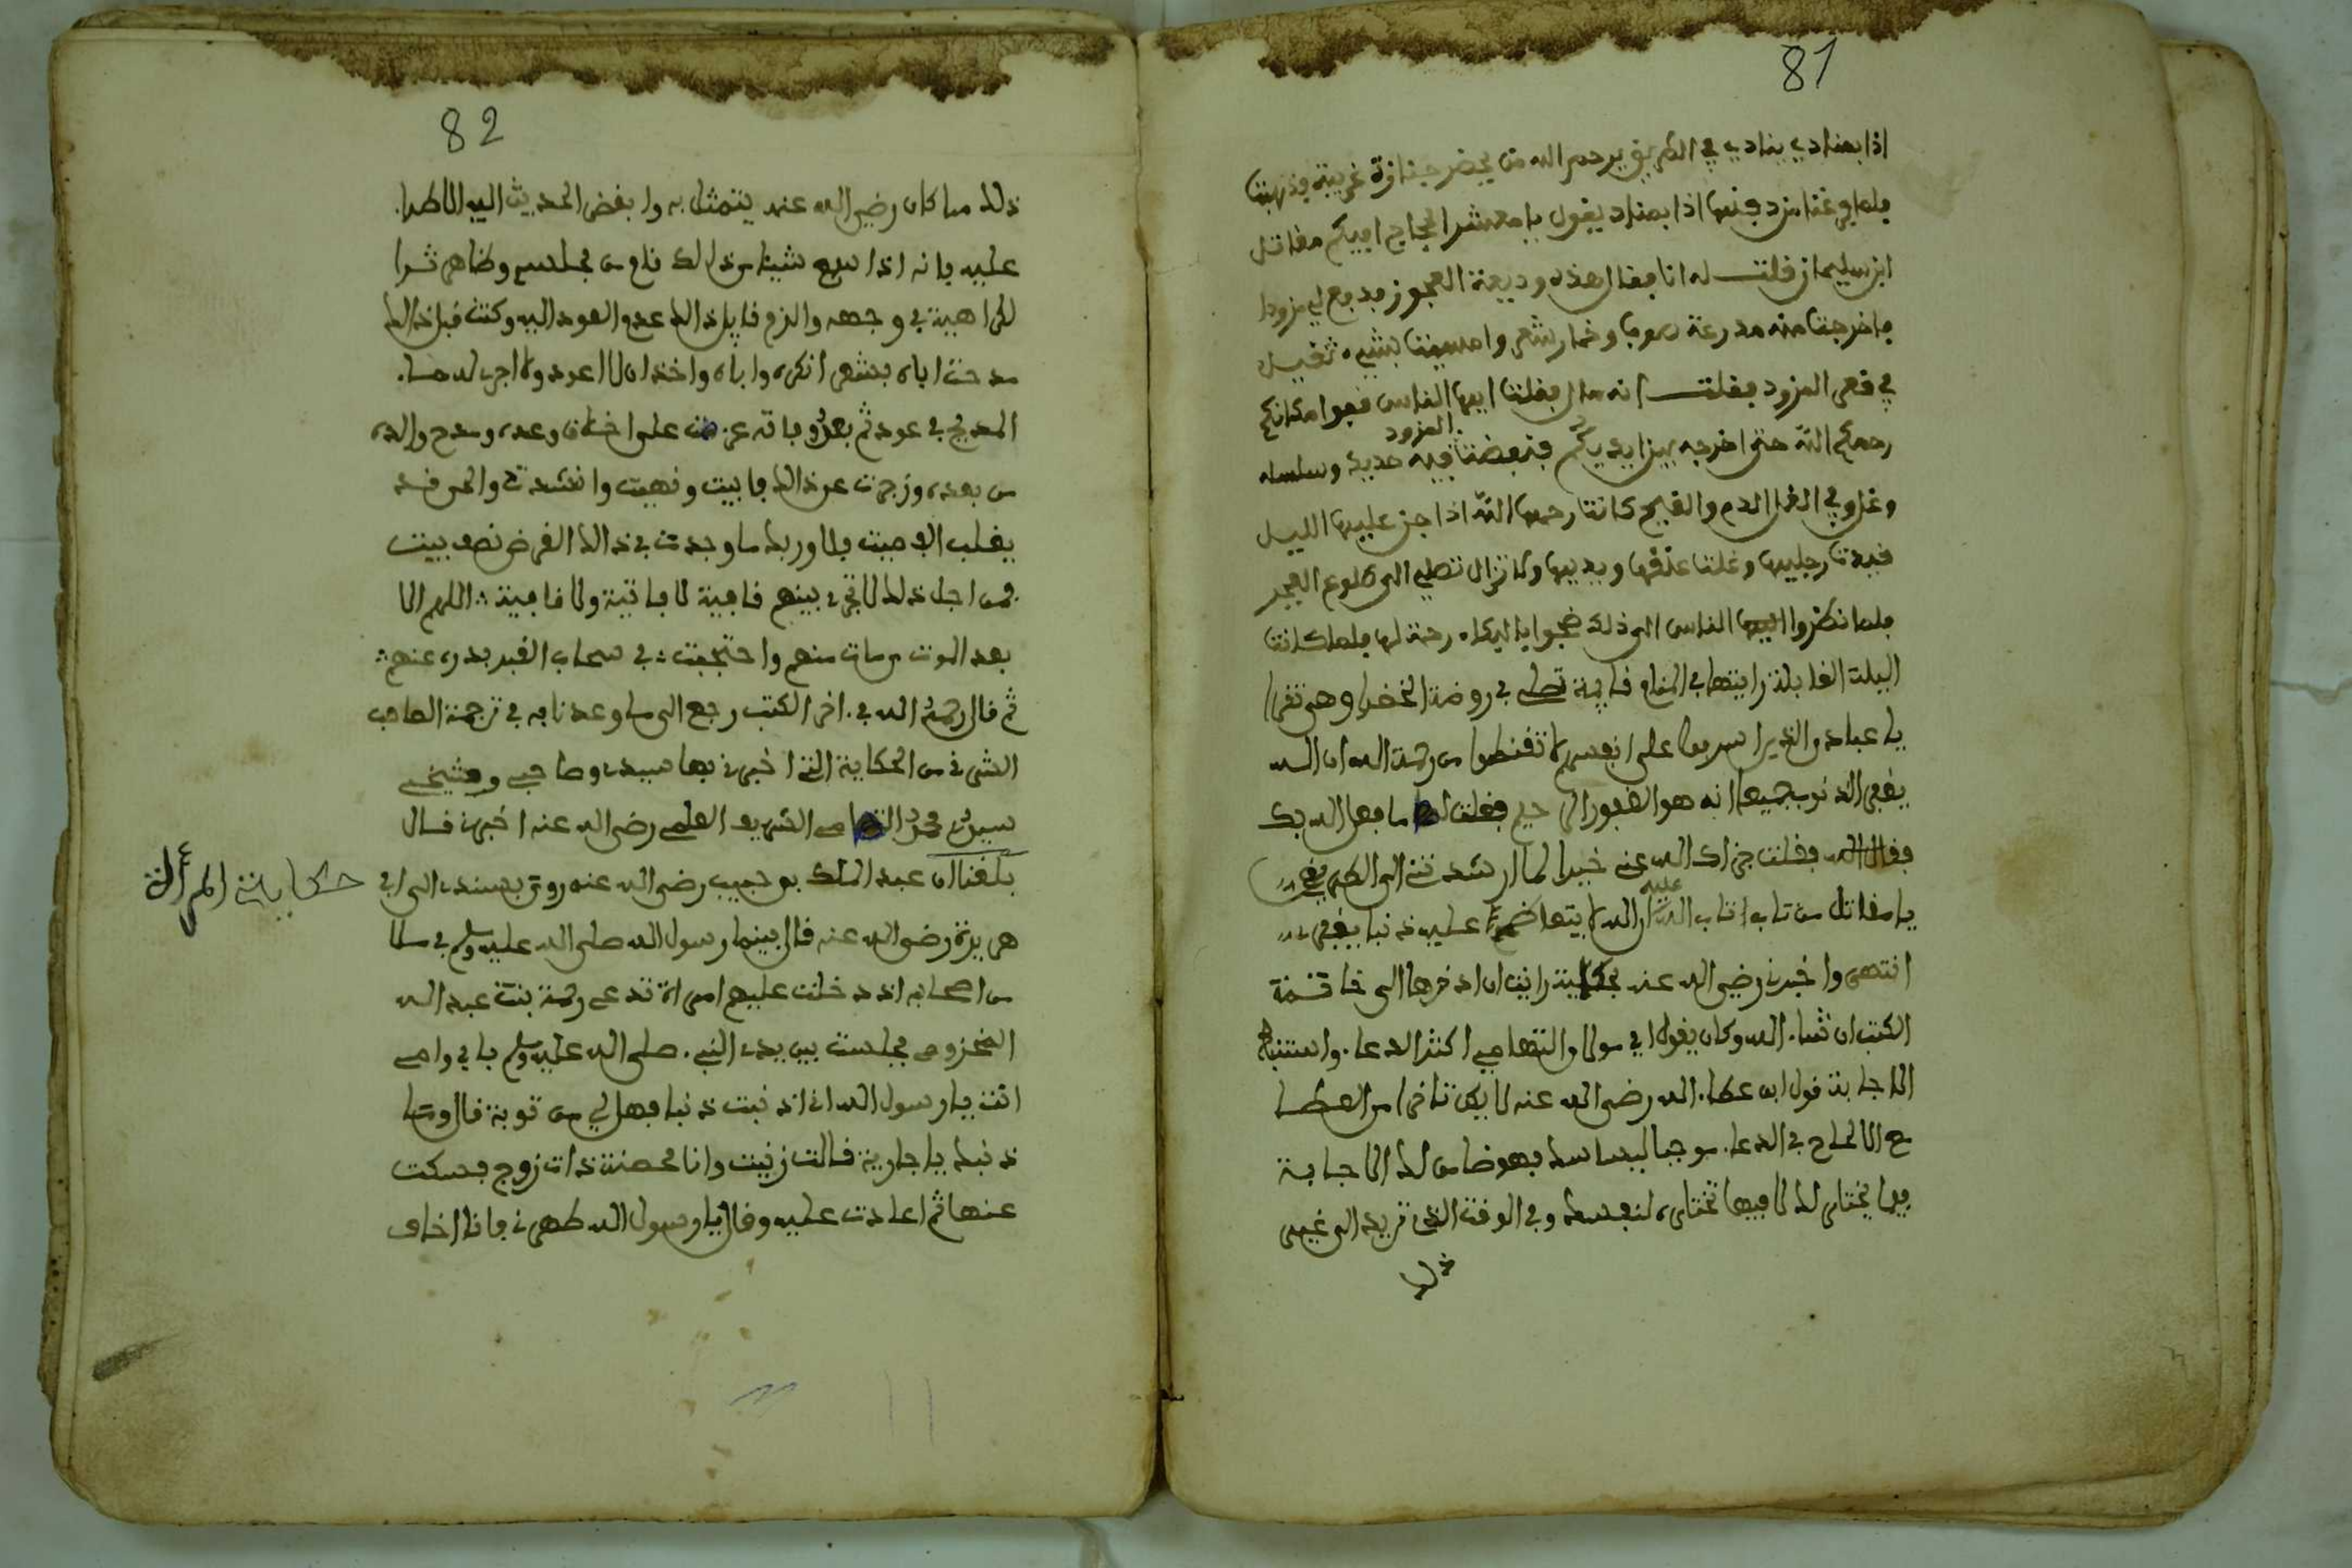 81
اذا بمنادي ينادي في الطريق يرحم الله من يحضر جنازة غريبة فذهبت
فلما فرغنا من دفنها اذا بمناد يقول يا معشر الحجاج افيكم مقاتل
ابن سليمان فقلت له انا فقال هذه وديعة العجوز فدفع لي مزودا
فاخرجت منه مدرعة صوف وخمار شعر وامسيت بشيء ثقيل
في قعر المزود فقلت انه مال فقلت ايها الناس قفوا مكانكم
رحمكم الله حتى اخرجه بين ايديكم فنفضت المزود فيه حديد وسلسله
وغل وفي الغل الدم والقيح كانت رحمها الله اذا جن عليها الليل
قيدت رجليها وغلت عنقها ويديها ولا تزال تصلي الى طلوع الفجر
فلما نظروا الناس الى ذلك ضجوا بالبكاء رحمة لها فلما كانت
اليلة القابلة رايتها في المنام قايمة تصلي في روضة الخضرا وهي تقرا
يا عبادي الذين اسرفوا على انفسهم لا تقنطوا من رحمة الله ان الله
يغفر الذنوب جميعا انه هو الغفور الرحيم فقلت لها ما فعل الله بك
فقلت جزاك الله عني خيرا لما ارشدتني الى الطريق
يا مقاتل من تاب تاب الله عليه ان الله لا يتعاظم عليه ذنبا يغفره
انتهى واخبرني رضي الله عنه بحكاية رايت ان اذخرها الى خاتمة
الكتب ان شاء الله وكان يقول لي مولاي التهامي اكثر الدعاء واستبطا
الاجابة قول ابن عطاء الله رضي الله عنه لا يكن تاخر امد العطا
مع الالحاح في الدعاء موجبا لياسك فهو ضامن لك الاجابة
فيما يختار لك لا فيما تختاره لنفسك وفي الوقت الذي يريد الى غير
ذلك
82
ذلك مما كان رضي الله عنه يتمثل به وابغض الحديث اليه الاطراء
عليه فانه اذا سمع شيئا من ذلك قام من مجلسه وظاهر ترا
الكراهية في وجهه والزم قايل ذالك عدم العود اليه وكنت قبل ذالك
مدحت اياه بشعر انكره واباه واخذ ان لا اعود ولا اجر له حسا
المديح في عود ثم بعد وفاته عزمت على اخلاف وعده ومدح والده
من بعده وزجرت عن ذالك فابيت ونهيت وانشدت والحر قد
يغلب الفصيت فلا وربك ما وجدت في ذالك الغرض نصف بيت
فمن اجل ذلك لا تجري بينهم قافية لا فاتية ولا قافية اللهم الا
بعد الموت من مات منهم واحتجبت في سحاب القبر بدره عنهم
ثم قال رحمه الله في اخر الكتب رجع الى ما وعدنا به في ترجمة الصاحب
الشرفي من الحكاية التي اخبرني بها سيدي وصاحبي وشيخي
سيدي محمد التهامي الشريف العلمي رضي الله عنه اخبرني قال
بلغنا ان عبد الملك بن حبيب رضي الله عنه روى بسنده الى ابي
حكاية المرأة
هريرة رضي الله عنه قال بينما رسول الله صلى الله عليه وسلم في ملا
من اصحابه اذ دخلت عليهم امراة تدعى رحمة بنت عبد الله
المخزومي فجلست بين يدي النبي صلى الله عليه وسلم بابي وامي
انت يا رسول الله اني اذنبت ذنبا فهل لي من توبة قال وما
ذنبك يا جارية قالت زنيت وانا محصنة ذات زوج فسكت
عنها ثم اعادت عليه وقال يا رسول الله طهرني فانا اخاف